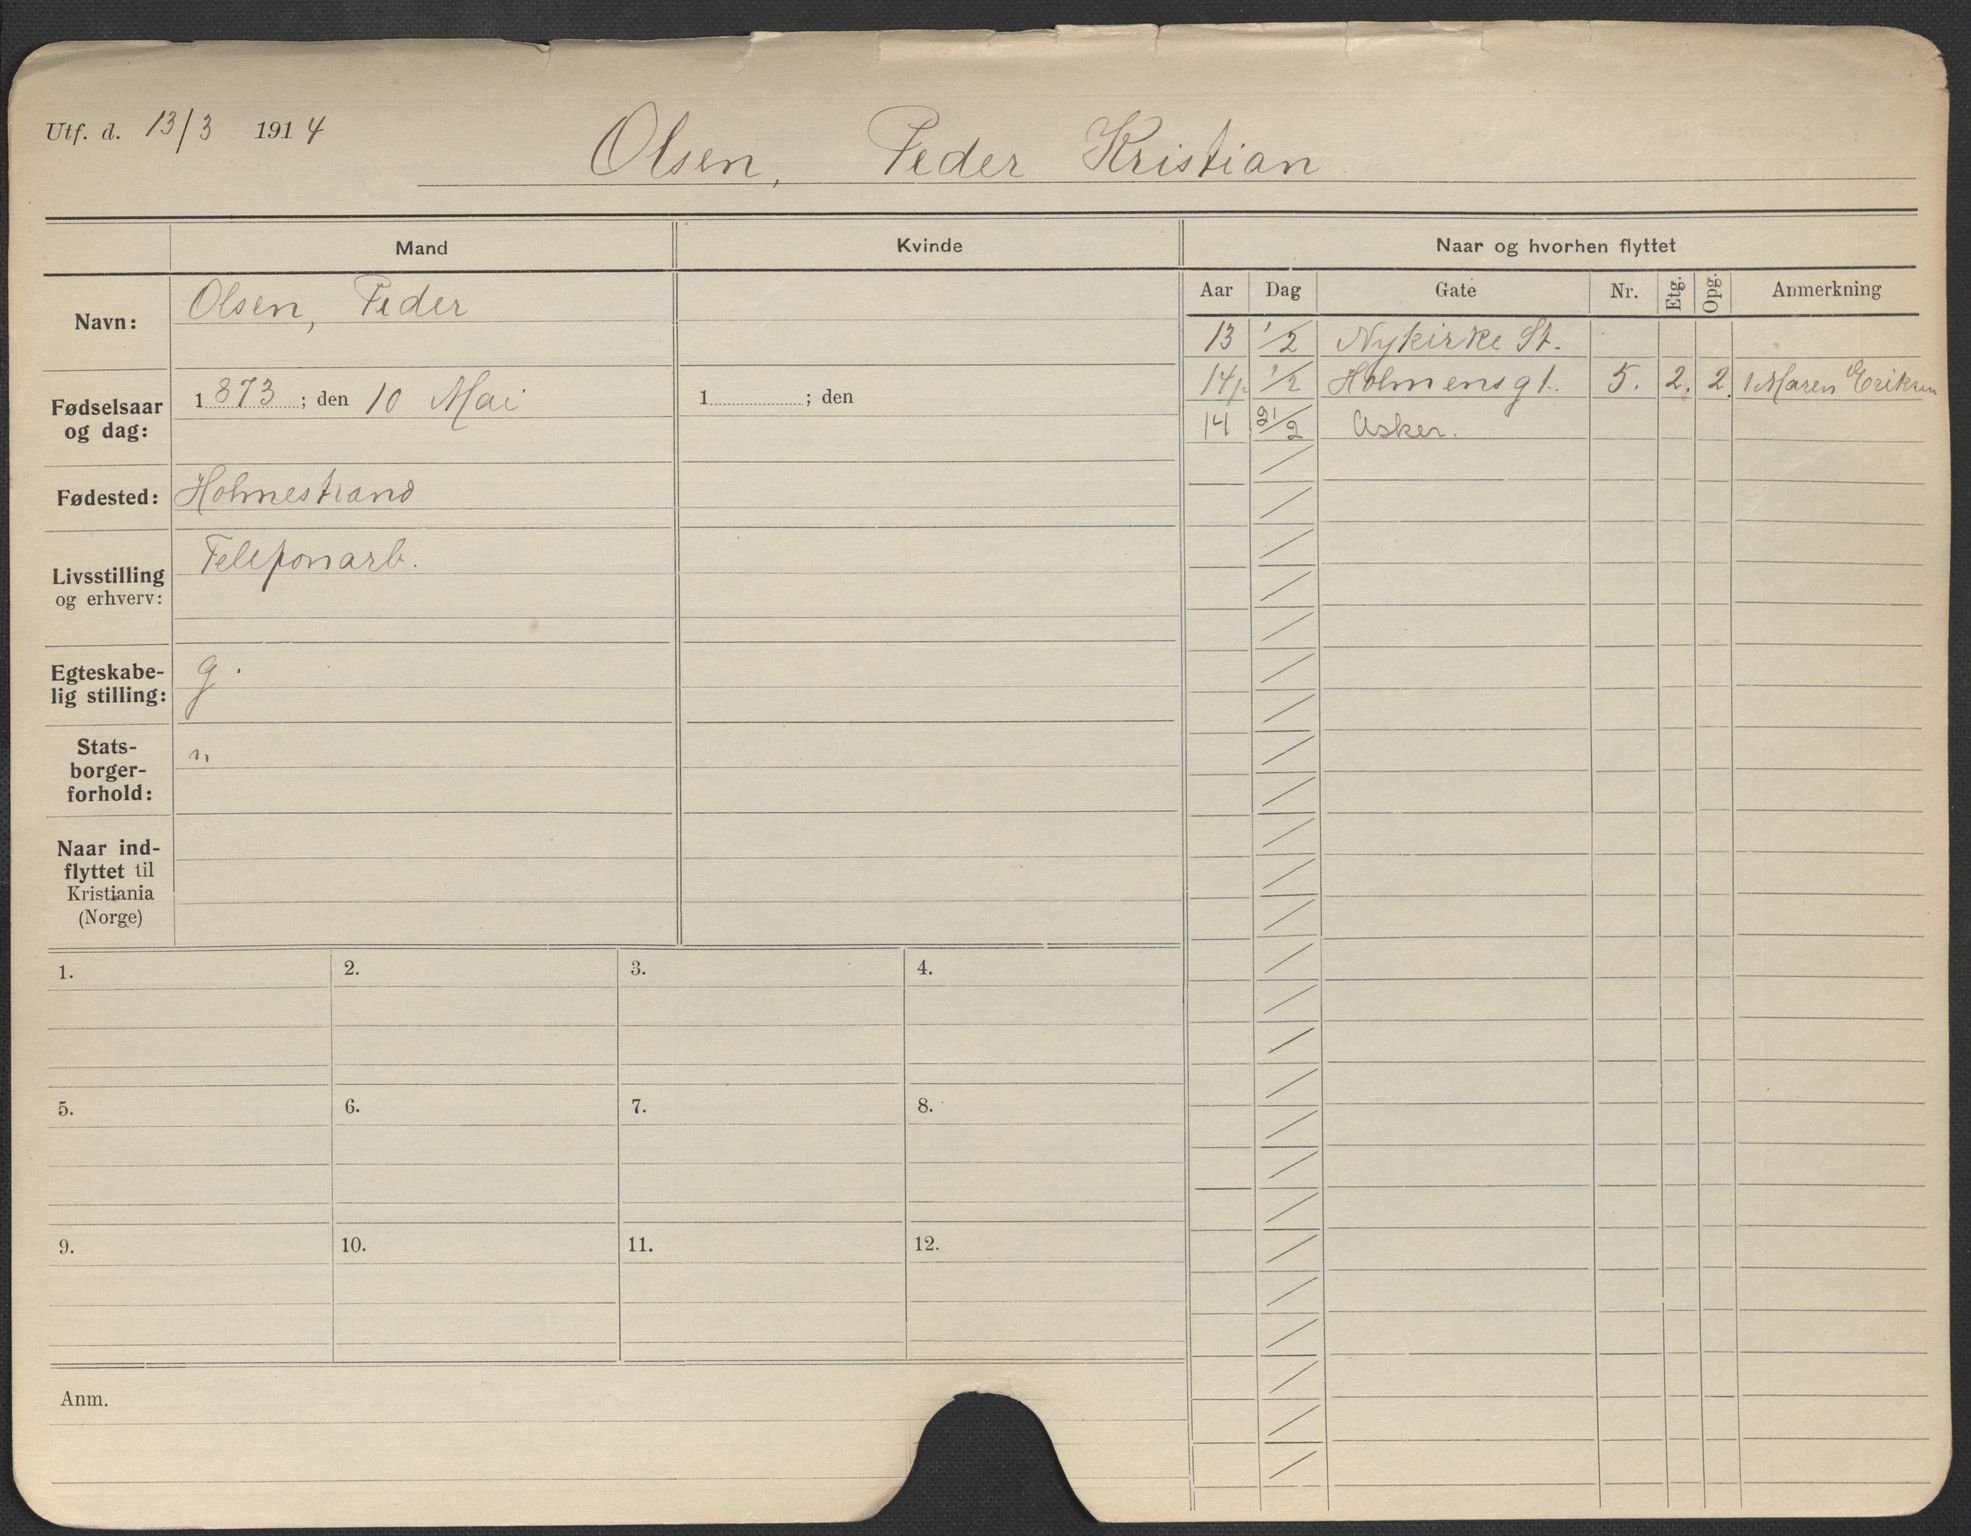 Utf. d. 13/3 1914
Olsen, Peder Kristian
Mand
Kvinde
Naar og hvorhen flyttet
Aar Dag Gate Nr. Etg. Opg. Anmerkning
Navn: Olsen, Peder
Fødselsaar og dag: 1873; den 10 Mai
1 ; den
Fødested: Holmestrand
Livsstilling og erhverv: Telefonarb.
Egteskabe-
lig stilling: g.
Stats-
borger-
forhold: n
Naar ind-
flyttet til
Kristiania
(Norge)
13 1/2 Nykirke St.
14 1/2 Holmensgt. 5. 2. 2. Maren Eriksen
14 21/2 Asker.
1. 2. 3. 4.
5. 6. 7. 8.
9. 10. 11. 12.
Anm.